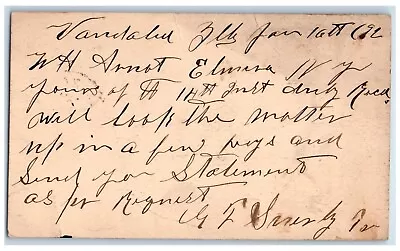 Vandalia Ills Jan 16th 1892
W H Arnot Elmira N Y
yours of the 14th Inst duly Recd
will look the matter
up in a few days and
send you Statement
as pr Request
G F